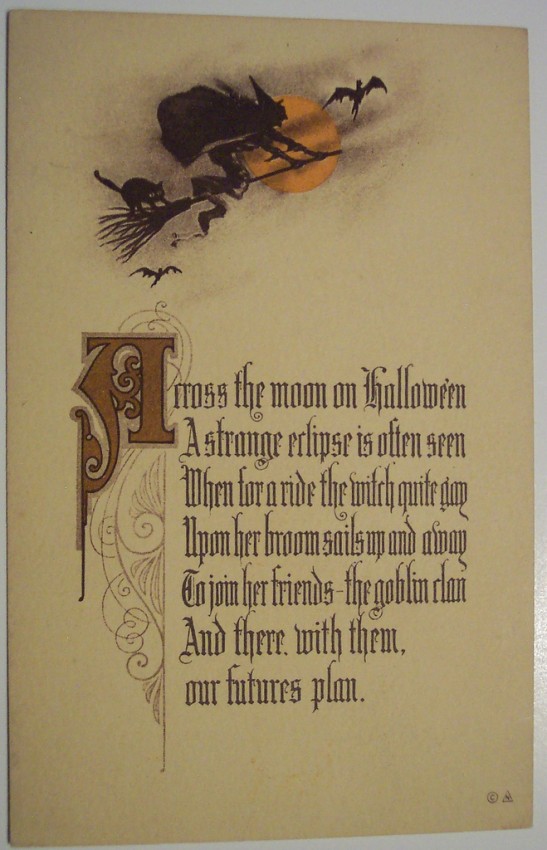 Across the moon on Hallowe'en
A strange eclipse is often seen
When for a ride the witch quite gay
Upon her broom sails up and away
To join her friends - the goblin clan
And there, with them,
our futures plan.
©